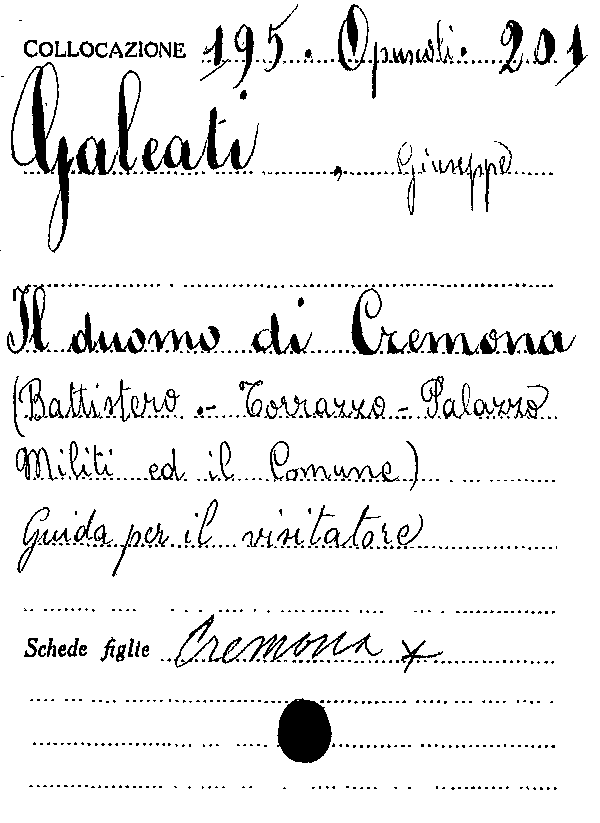 COLLOCAZIONE 195. Opuscoli. 201
Galeati, Giuseppe
Il duomo di Cremona
(Battistero.- Torrazzo - Palazzo
Militi ed il Comune)
Guida per il visitatore
Schede figlie Cremona x